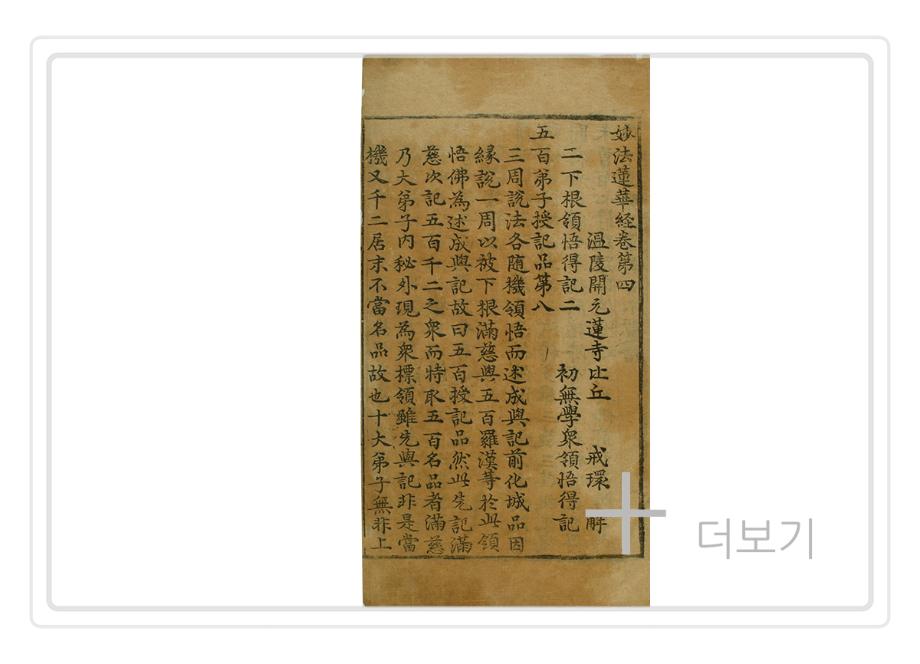 妙法蓮華経卷第四
溫陵開元蓮寺比丘 戒環 解
二下根領悟得記二 初無學衆領悟得記
五百弟子授記品第八
三周說法各随機領悟而述成與記前化城品因
緣說一周以被下根滿慈與五百羅漢等於此領
悟佛為述成與記故曰五百授記品然此先記滿
慈次記五百千二之衆而特取五百名品者滿慈
乃大弟子內秘外現為衆標領雖先與記非是當
機又千二居末不當名品故也十大弟子無非上
더보기